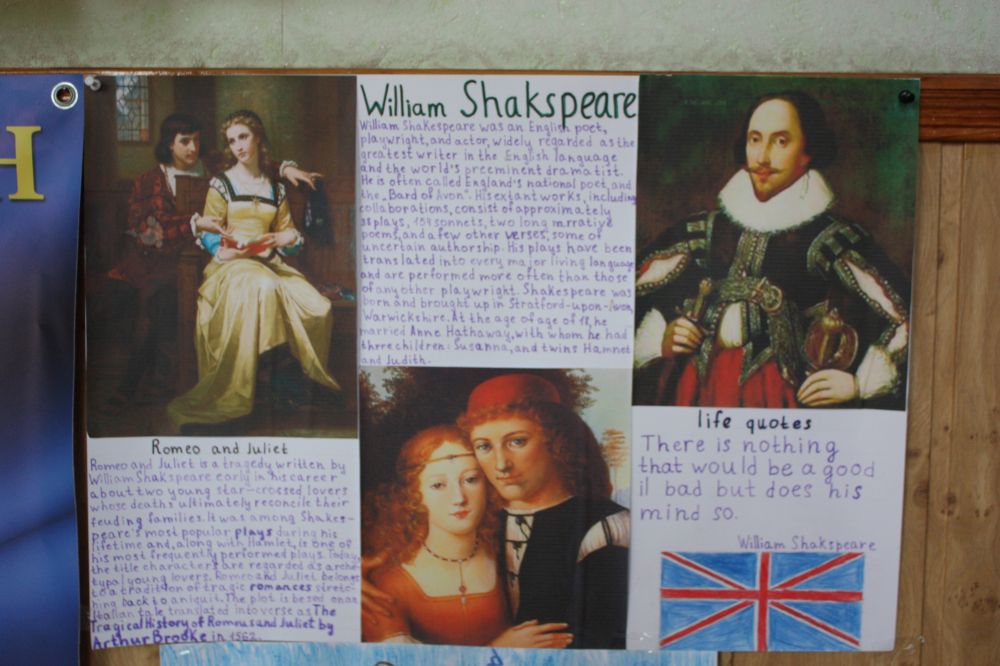 H
William Shakspeare
William Shakespeare was an English poet,
playwright, and actor, widely regarded as the
greatest writer in the English language
and the world's preeminent dramatist.
He is often called England's national poet, and
the „Bard of Avon". His extant works, including
collaborations, consist of approximately
38 plays, 154 sonnets, two long nrrative
poems, and a few other verses, some of
uncertain authorship. His plays have been
translated into every major living language
and are performed more often than those
of any other playwright. Shakespeare was
born and brought up in Stratford-upon-Avon,
Warwickshire. At the age of age of 18, he
married Anne Hathaway, with whom he had
three children: Susanna, and twins Hamnet
and Judith.
Romeo and Juliet
Romeo and Juliet is a tragedy written by
William Shakespeare early in his career
about two young star-crossed lovers
whose deaths ultimately reconcile their
feuding families. It was among Shakes-
peare's most popular plays during his
lifetime and, along with Hamlet, is one of
his most frequently performed plays. Today,
the title characters are regarded as arche-
typal young lovers. Romeo and Juliet belongs
to a tradition of tragic romances stretc-
hing back to aniquit. The plot is based on an
Italian tale translated into verse as The
Tragical History of Romeus and Juliet by
Arthur Brooke in 1562.
life quotes
There is nothing
that would be a good
il bad but does his
mind so.
William Shakspeare